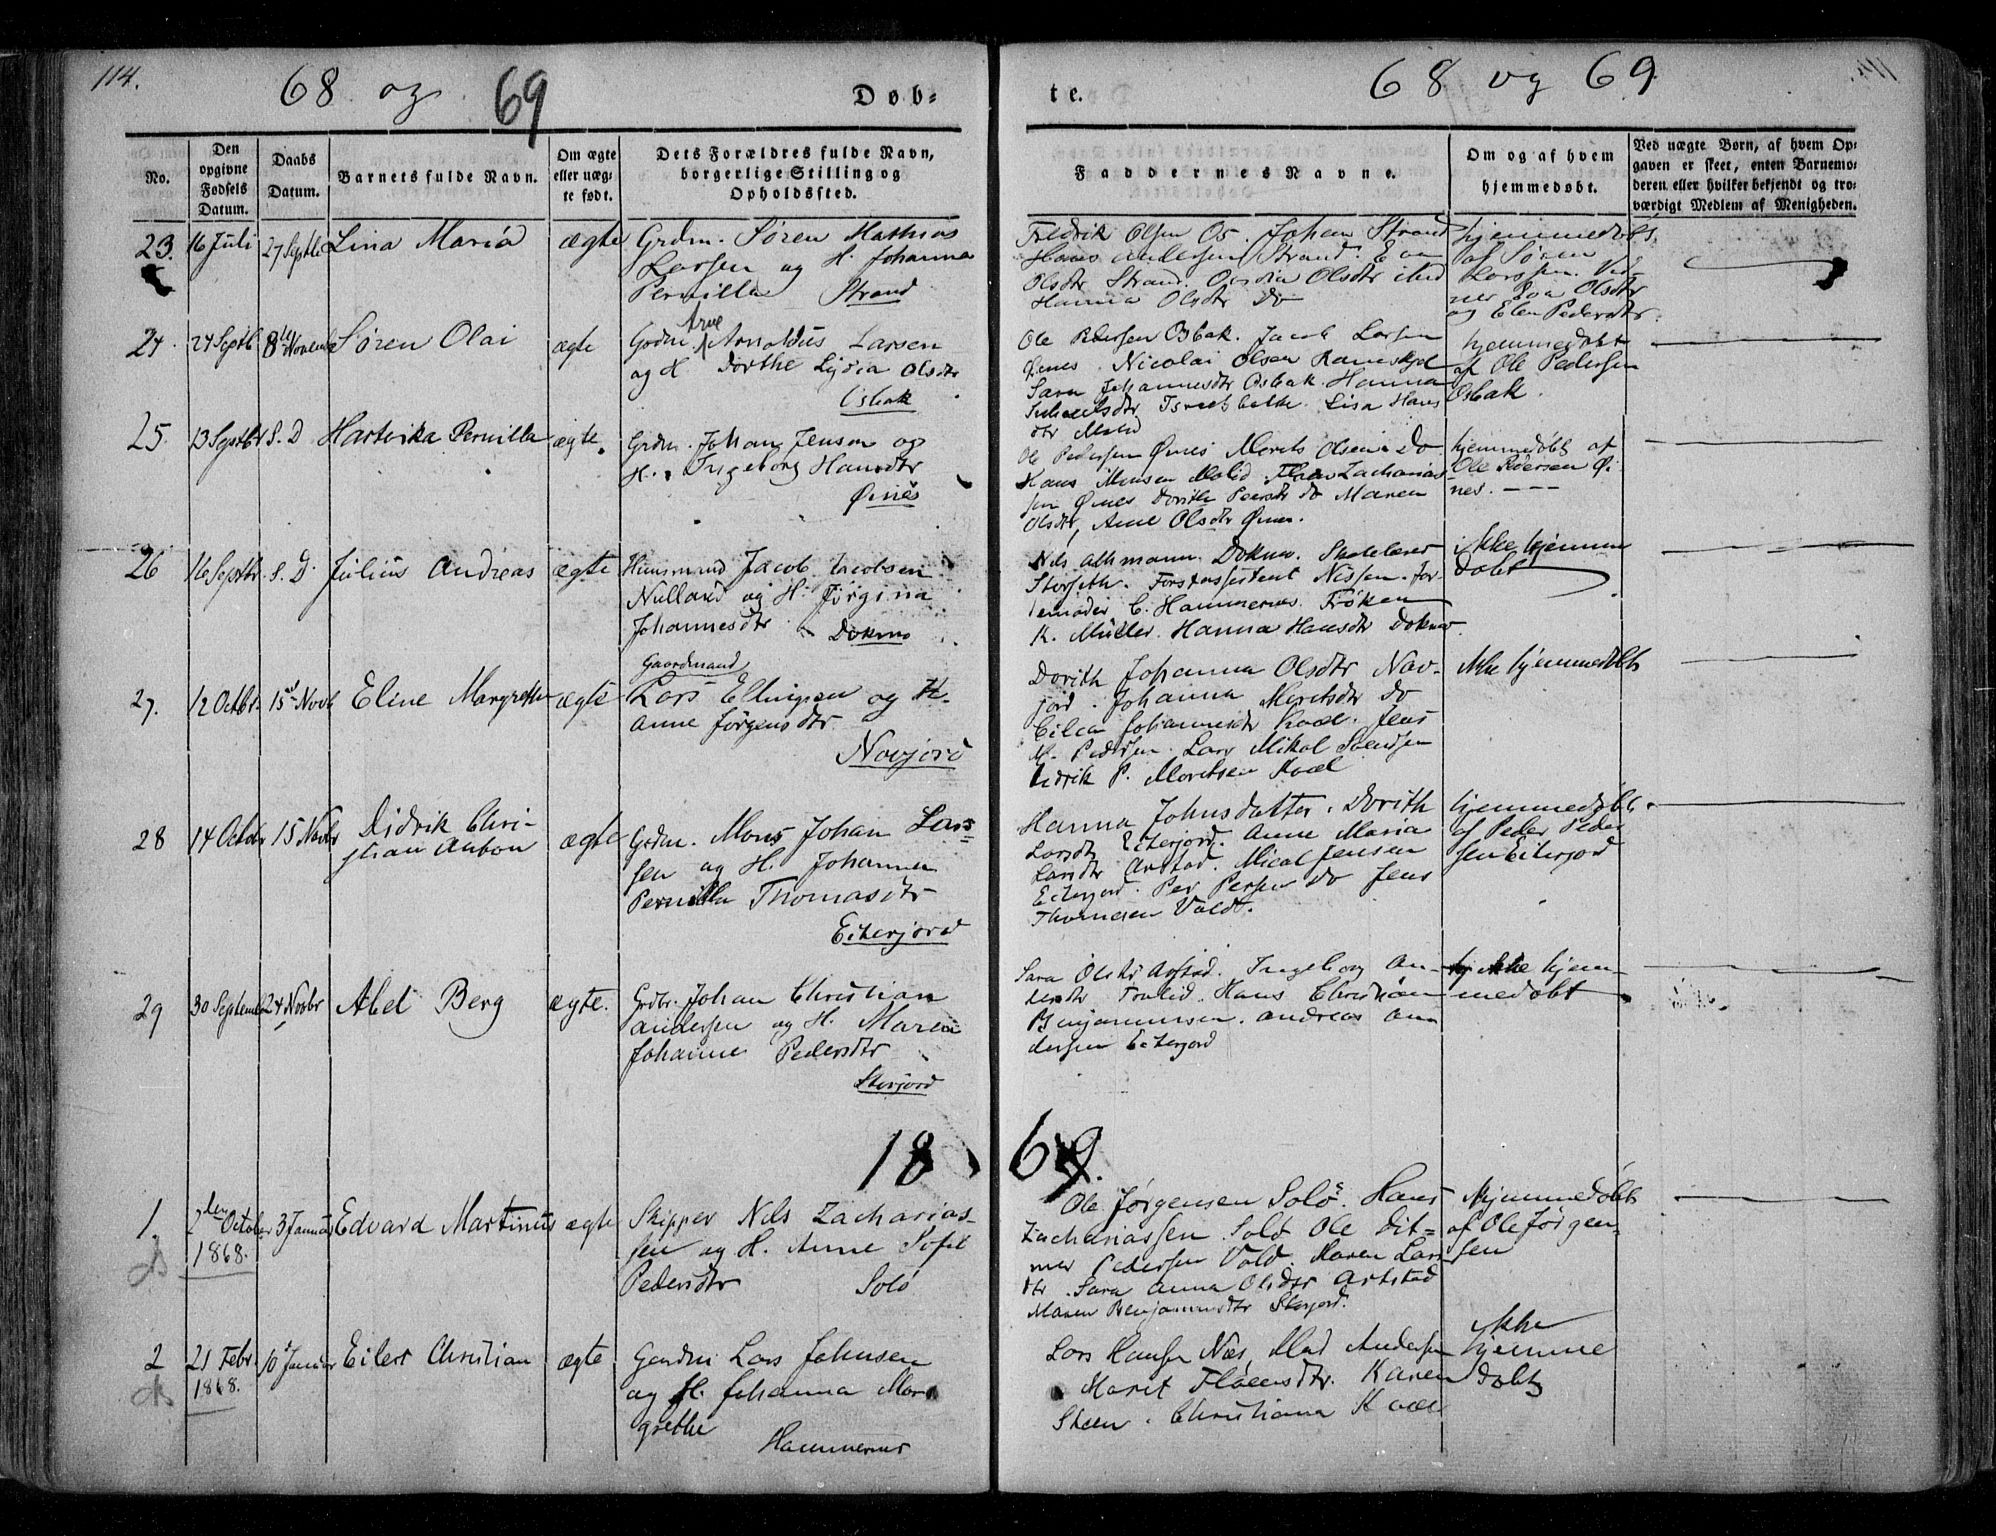 114.
68 og 69
Døb=
te.
68 og 69
No.
Den
opgivne
Fødsels
Datum.
Daabs
Datum.
Barnets fulde Navn.
Om ægte
eller uæg-
te født.
Dets Forældres fulde Navn,
borgerlige Stilling og
Opholdssted.
Faddernes Navne.
Om og af hvem
hjemmedøbt.
Ved uægte Børn, af hvem Op-
gaven er skeet, enten Barnemo-
deren eller hvilker bekjendt og tro-
værdigt Medlem af Menigheden.
23. 16 Juli 27 Septbr Lina Maria ægte Grdm. Søren Mathias
Larsen og H. Johanna
Pernilla Strand
Fredrik Olsen Os. Johan Strand
Hans Andersen Strand. Eva
Olsdtr Strand. Olsdtr
Hanna Olsdtr Do
hjemmedøbt
af Søren
Larssen.
Eva Olsdtr
og Elen Pedersdtr.
24 24 Septb. 8de Novemb Søren Olai ægte Grdm Arnoldus Larsen
og H Dorthe Lydia Olsdtr
Osbak
Ole Pedersen Osbak. Jacob Larsen
Øines. Nicolai Olsen
Sara Johannesdtr Osbak. Hanna
Lisa Hans
dtr Molid
hjemmedøbt
af Ole Pedersen
Osbak.
25. 13 Septbr S. D Hartvika Pernilla ægte. Grdm. Johan Jensen og
H. Ingeborg Hansdtr
Øines
Ole Pedersen Øines Morits Olsen Do
Hans Monsen Molid. Zacharias
sen Øines Dorith Do Maren
Olsdtr, Ane Olsdtr Øines.
hjemmedøbt af
Ole Pedersen Øi-
nes. ---
26 16 Septbr. S. D. Julius Andreas ægte Huusmand Jacob Jacobsen
Nulland og H. Jørgina
Johannesdtr Dokmo
Nils Dokmo. Skolelærer
Storjeth. Forstassistent Nissen. Jor-
demoder C. Hammernes. Frøken
K. Müller. Hanna Hansdtr Dokmo.
ikke hjemme
døbt
27. 12 Octbr. 15de Novb Eline Margrethe ægte Gaardmand
Lars Ellingsen og H.
Anne Jørgensdtr
Novjord
Dorith Johanna Olsdtr Nov-
jord. Johanna Moritsdtr Do
Johannesdtr Kvæl. Jens
M. Pedersen. Lars Mikal Svendsen
P. Moritsen Kvæl
ikke hjemmedøbt
28 14 Octobr 15 Novbr Didrik Chri-
stian Anton ægte Grdm. Mons Johan Lars-
sen og H. Johanna
Pernilla Thomasdtr
Eiterjord
Hanna Johnsdatter. Dorith
Larsdtr Eiterjord. Anne Maria
Larsdtr Arstad. Mical Jensen
Eiterjord. Per Persen Do Jens
Thomesen Vold.
hjemmedøbt
af Peder Peder
sen Eiterjord
29 30 Septemb 24 Novbr Abel Berg ægte. Grdbr. Johan Christian
Andersen og H. Maren
Johanne Pedersdtr
Storjord
Sara Olsdtr Arstad. Ingeborg An-
dersdtr Hans Christian
Benjaminsen. Andreas An-
dersen Eiterjord
ikke hjem-
medøbt
1869.
1. 2den October 3 Januar Edvard Martinus ægte Skipper Nils Zacharias-
1868. sen og H. Anne Sofie
Pedersdtr Solø
Ole Jørgensen Solø. Hans
Zachariassen Solø Ole Dit-
mer Pedersen Vold. Maren Lars
dtr. Sara Anna Olsdtr Arstad
Maren Benjaminsdtr Storjord.
hjemmedøbt
af Ole Jørgen-
sen
2 21 Febr. 10 Januar Eilert Christian ægte Gardm Lars Johnsen
1868. og H. Johanna Mar
grethe
Hammernes
Lars Hansen Næs, Mad Andersen
Marit Karen
Steen. Christiana Kvæl
ikke
hjemme
døbt